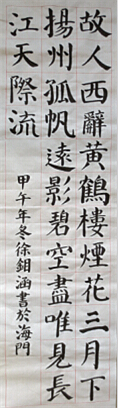 故人西辭黃鶴樓煙花三月下
揚州孤帆遠影碧空盡唯見長
江天際流
甲午年冬徐鈅涵書於海門